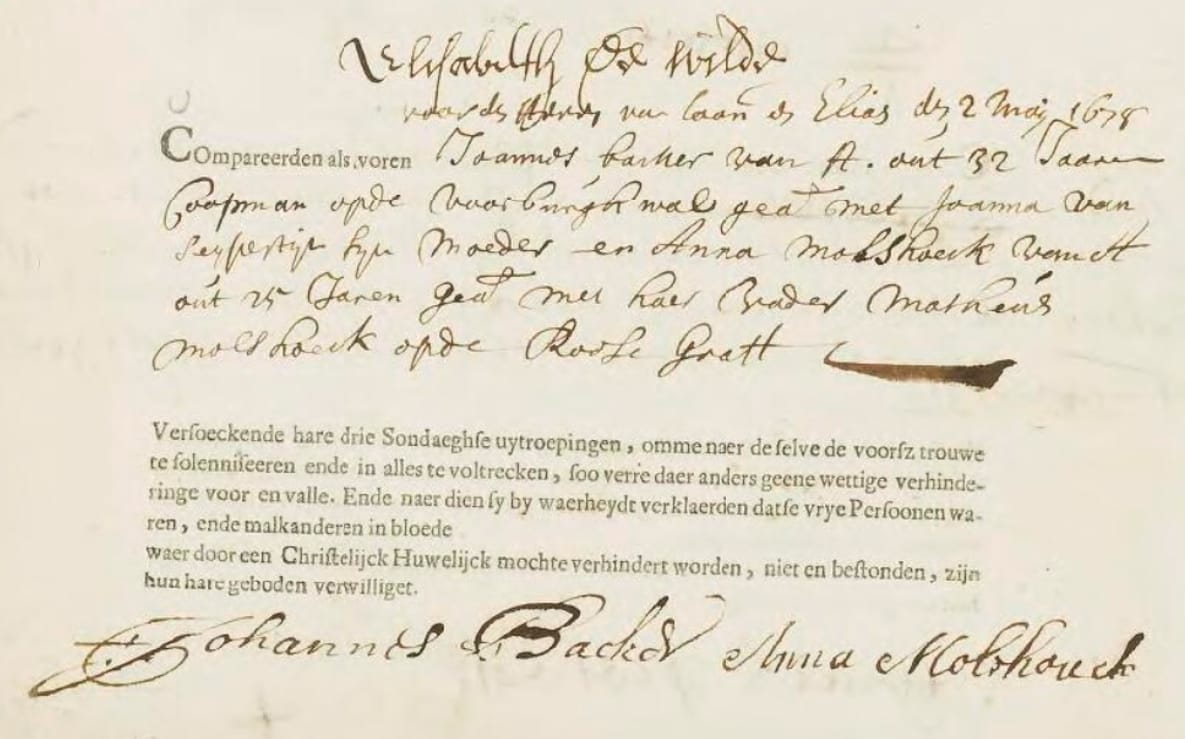 Elisabeth De Wilde
voor de Heren van Loon en Elias den 2 Maij 1678
Compareerden als voren Joannes backer van A. out 32 Jaaren
Coopman opde voorburghwal geat met Joanna van
syn Moeder en Anna Molshoeck van A
out 25 Jaren geat met haer Vader Matheus
molshoeck opde Roose Graft
Versoeckende hare drie Sondaeghse uytroepingen, omme naer de selve de voorsz trouwe
te solenniseeren ende in alles te voltrecken, soo verre daer anders geene wettige verhinde-
ringe voor en valle. Ende naer dien sy by waerheydt verklaerden datse vrye Persoonen wa-
ren, ende malkanderen in bloede
waer door een Christelijck Huwelijck mochte verhindert worden, niet en bestonden, zijn
hun hare geboden verwilliget.
Johannes Backer Anna Molshouck